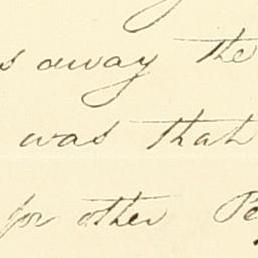 s away the
was that
for other Pe